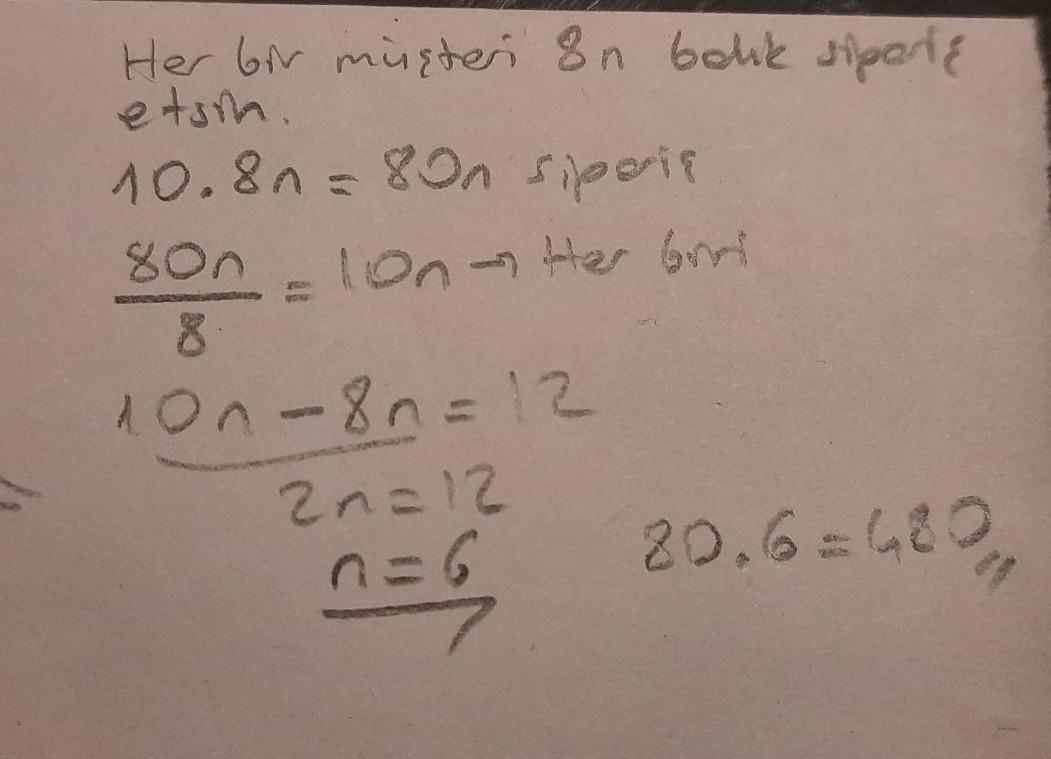 Her bir müşteri 8n balık sipariş
etsin.
10.8n = 80n sipariş
80n
8
= 10n → Her biri
10n - 8n = 12
2n = 12
n = 6
80.6 = 480,,